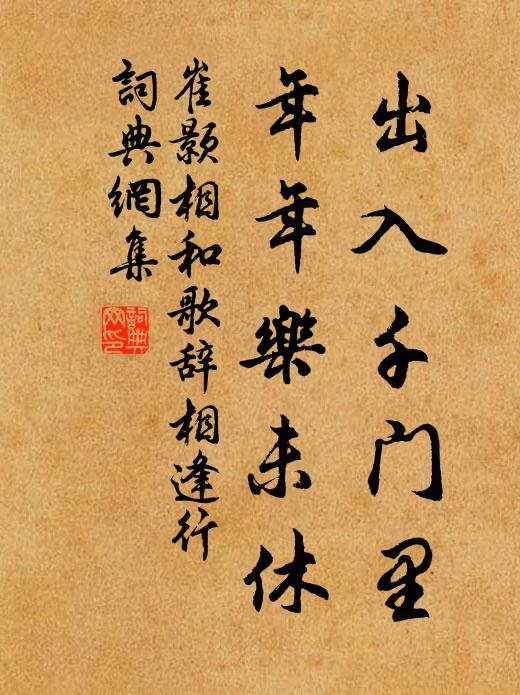 出入千门里
年年樂未休
崔颢相和歌辞相逢行
詞典網集
詞典網印